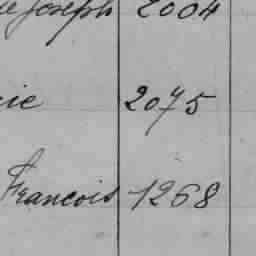 Joseph 2004
cie 2075
Francois 1268